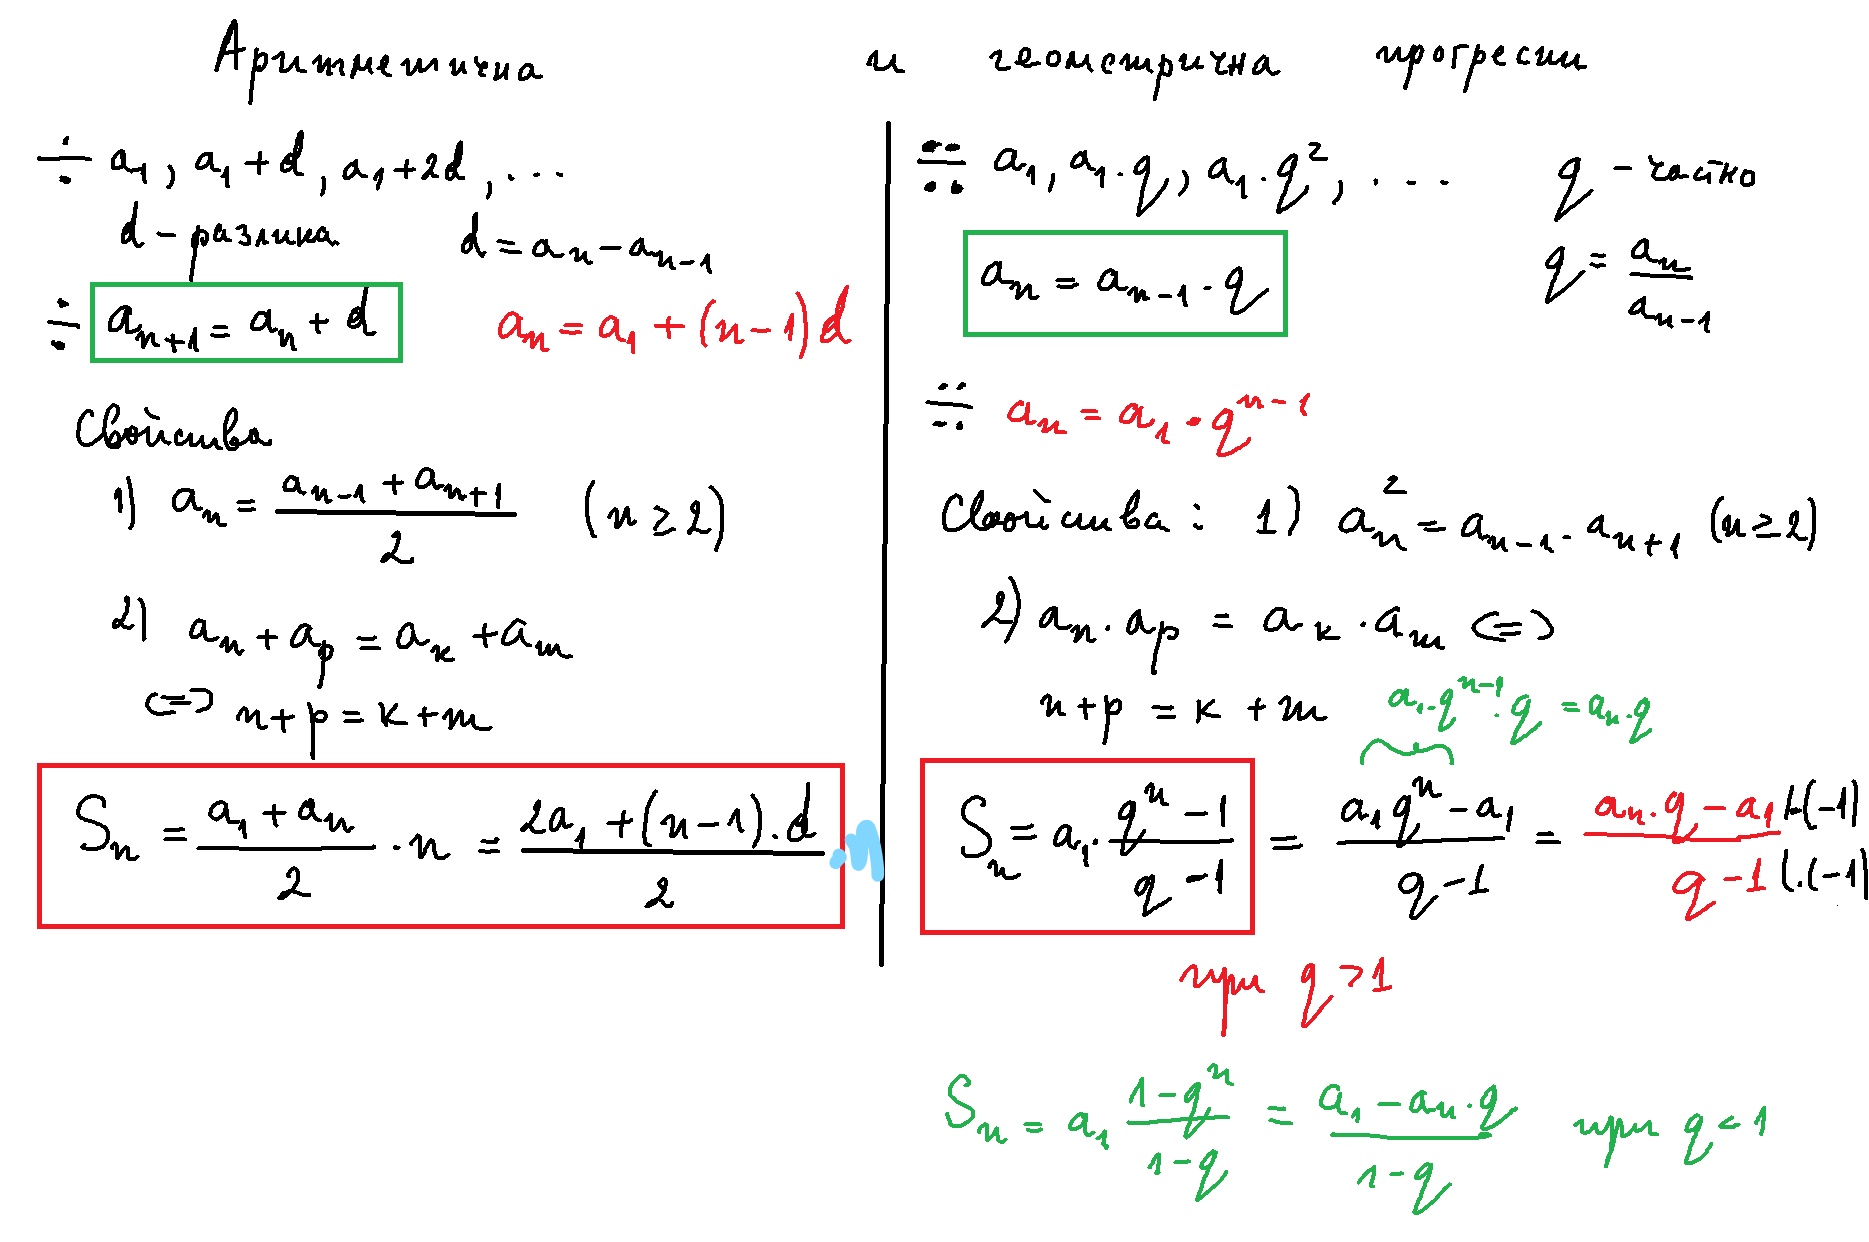 Аритметична и геометрична прогресии
÷ a₁, a₁+d, a₁+2d, ...
d – разлика d = aₙ – aₙ₋₁
÷ aₙ₊₁ = aₙ + d aₙ = a₁ + (n–1)d
Свойства
1) aₙ = (aₙ₋₁ + aₙ₊₁)/2 (n ≥ 2)
2) aₙ + aₚ = aₖ + aₘ
<=> n+p = k+m
Sₙ = (a₁ + aₙ)/2 · n = (2a₁ + (n–1).d)/2 .n
÷÷ a₁, a₁.q, a₁.q², ... q – частно
aₙ = aₙ₋₁ · q q = aₙ/aₙ₋₁
÷÷ aₙ = a₁ · qⁿ⁻¹
Свойства: 1) aₙ² = aₙ₋₁ . aₙ₊₁ (n≥2)
2) aₙ . aₚ = aₖ . aₘ <=>
n+p = k+m a₁.qⁿ⁻¹.q = aₙ.q
Sₙ = a₁ . (qⁿ – 1)/(q – 1) = (a₁qⁿ – a₁)/(q – 1) = (aₙ.q – a₁)/(q – 1) |.(–1) |.(–1)
при q > 1
Sₙ = a₁ (1–qⁿ)/(1–q) = (a₁ – aₙ.q)/(1–q) при q < 1